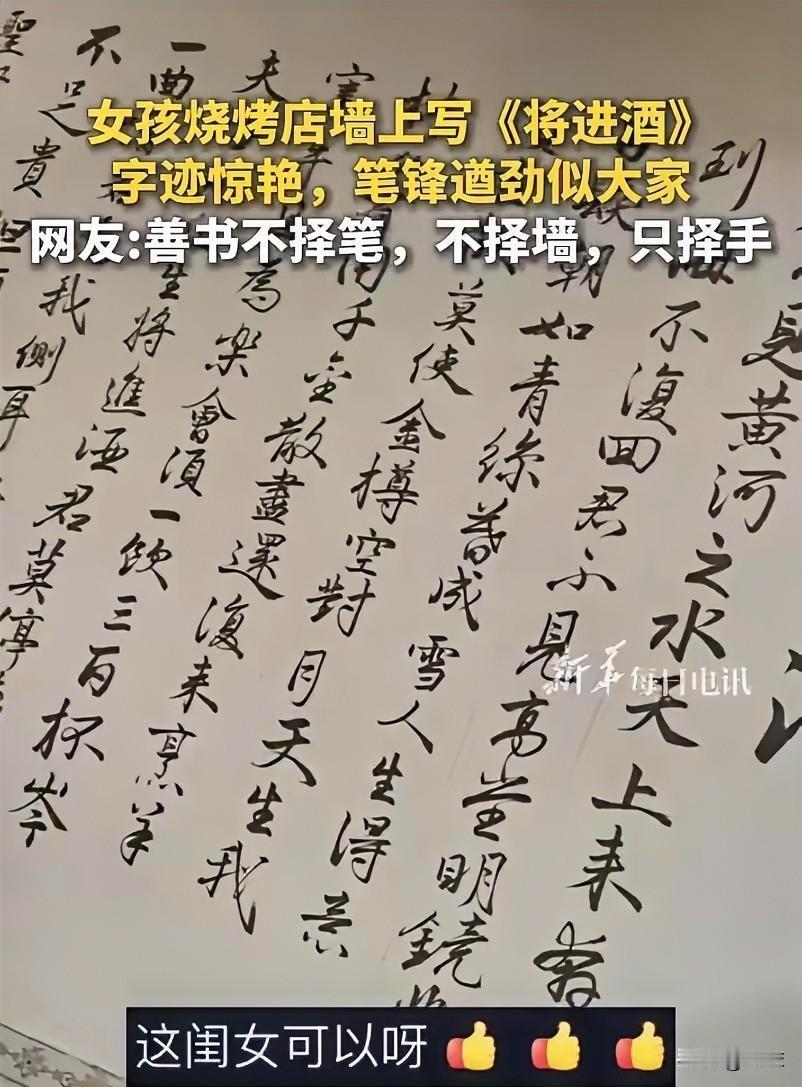 女孩烧烤店墙上写《将进酒》
字迹惊艳，笔锋遒劲似大家
网友:善书不择笔，不择墙，只择手
見黄河之水天上来奔
到海不復回君不見高堂明鏡
朝如青絲暮成雪人生得意
莫使金樽空對月天生我
用千金散盡還復来烹羊
宰 為樂會須一飲三百杯岑
夫 生將進酒君莫停
一曲 我側耳
不足貴
新华每日电讯
这闺女可以呀👍👍👍